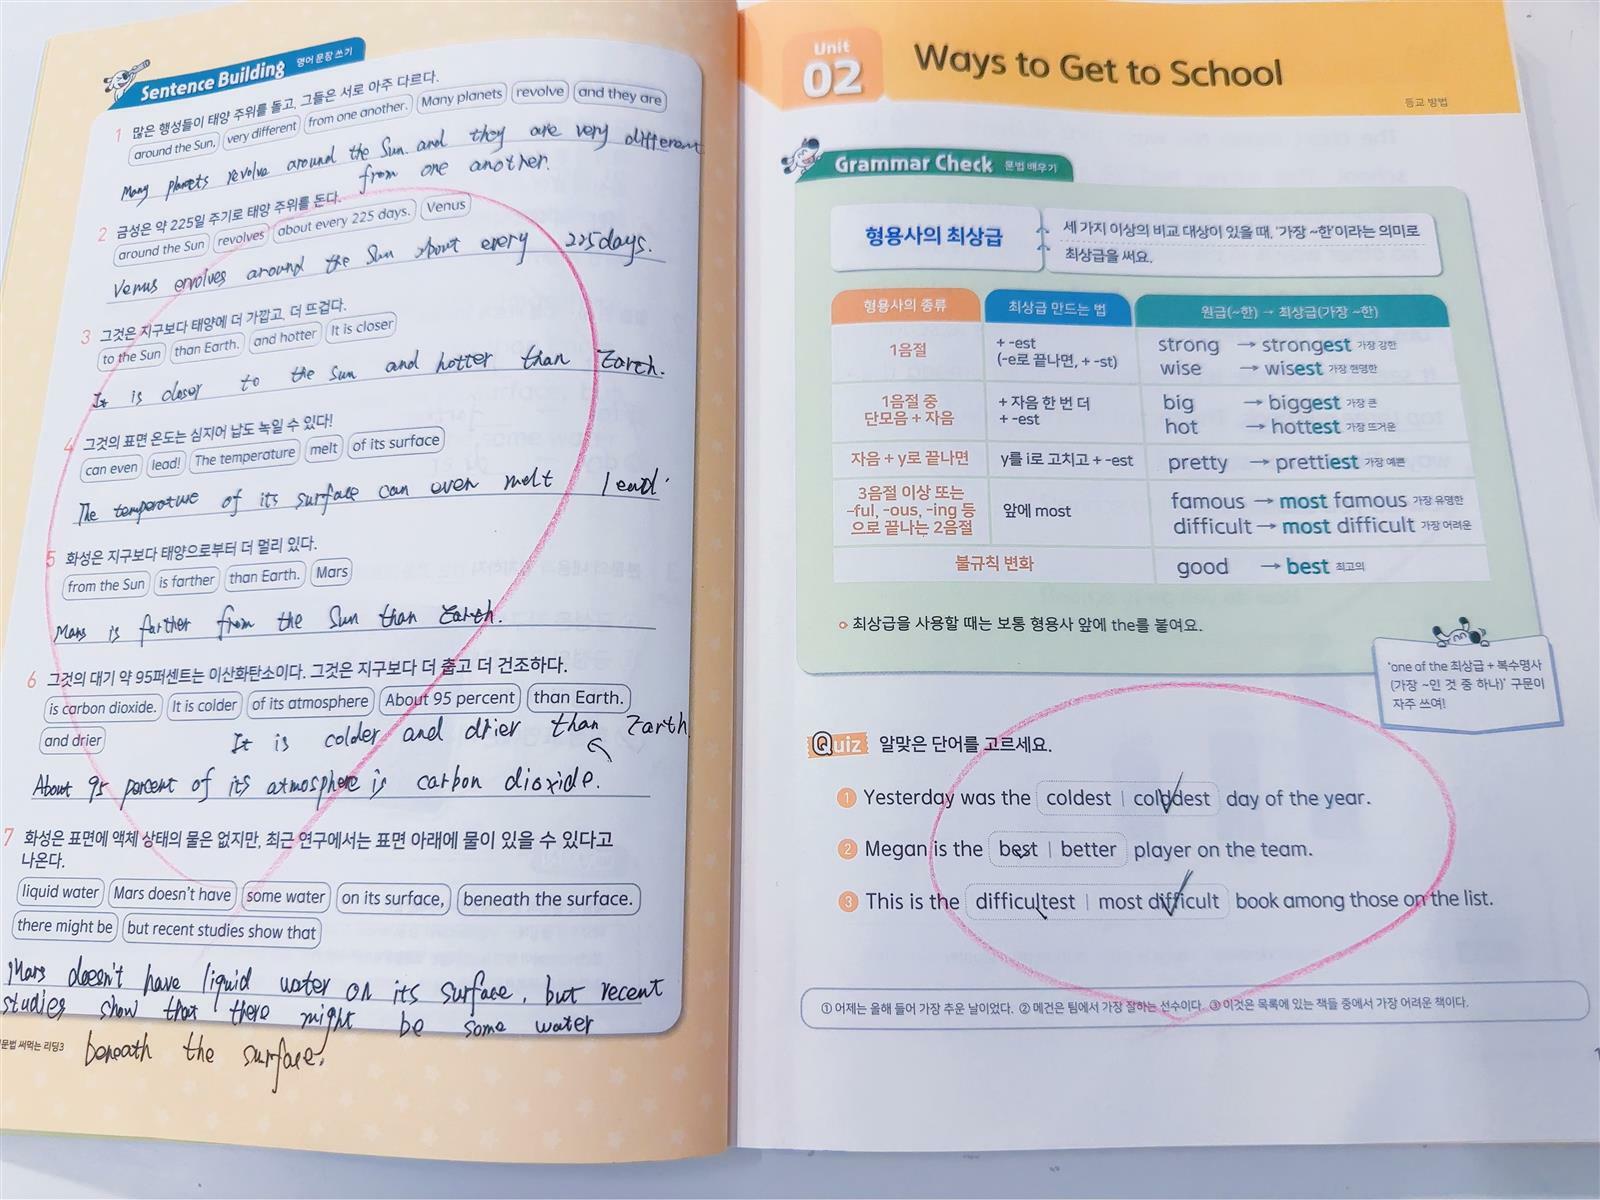 Sentence Building 영어 문장 쓰기
1 많은 행성들이 태양 주위를 돌고, 그들은 서로 아주 다르다.
around the Sun, very different from one another. Many planets revolve and they are
Many planets revolve around the Sun. and they are very different
from one another.
2 금성은 약 225일 주기로 태양 주위를 돈다.
around the Sun revolves about every 225 days. Venus
Venus envolves around the Sun about every 225days.
3 그것은 지구보다 태양에 더 가깝고, 더 뜨겁다.
to the Sun than Earth. and hotter It is closer
It is closer to the Sun and hotter than Earth.
4 그것의 표면 온도는 심지어 납도 녹일 수 있다!
can even lead! The temperature melt of its surface
The temperature of its surface can even melt lead.
5 화성은 지구보다 태양으로부터 더 멀리 있다.
from the Sun is farther than Earth. Mars
Mars is farther from the Sun than Earth.
6 그것의 대기 약 95퍼센트는 이산화탄소이다. 그것은 지구보다 더 춥고 더 건조하다.
is carbon dioxide. It is colder of its atmosphere About 95 percent than Earth.
and drier
It is colder and drier than Earth
About 95 percent of its atmosphere is carbon dioxide.
7 화성은 표면에 액체 상태의 물은 없지만, 최근 연구에서는 표면 아래에 물이 있을 수 있다고
나온다.
liquid water Mars doesn't have some water on its surface, beneath the surface.
there might be but recent studies show that
Mars doesn't have liquid water on its surface, but recent
studies show that there might be some water
beneath the surface.
문법 써먹는 리딩3
Unit
02
Ways to Get to School
등교 방법
Grammar Check 문법 배우기
형용사의 최상급
세 가지 이상의 비교 대상이 있을 때, '가장 ~한'이라는 의미로
최상급을 써요.
형용사의 종류 최상급 만드는 법 원급(~한) → 최상급(가장 ~한)
1음절
+ -est
(-e로 끝나면, + -st)
strong → strongest 가장 강한
wise → wisest 가장 현명한
1음절 중
단모음 + 자음
+ 자음 한 번 더
+ -est
big → biggest 가장 큰
hot → hottest 가장 뜨거운
자음 + y로 끝나면 y를 i로 고치고 + -est pretty → prettiest 가장 예쁜
3음절 이상 또는
-ful, -ous, -ing 등
으로 끝나는 2음절
앞에 most
famous → most famous 가장 유명한
difficult → most difficult 가장 어려운
불규칙 변화 good → best 최고의
최상급을 사용할 때는 보통 형용사 앞에 the를 붙여요.
'one of the 최상급 + 복수명사
(가장 ~인 것 중 하나)' 구문이
자주 쓰여!
Quiz 알맞은 단어를 고르세요.
1 Yesterday was the coldest | colddest day of the year.
2 Megan is the best | better player on the team.
3 This is the difficultest | most difficult book among those on the list.
① 어제는 올해 들어 가장 추운 날이었다. ② 메건은 팀에서 가장 잘하는 선수이다. ③ 이것은 목록에 있는 책들 중에서 가장 어려운 책이다.